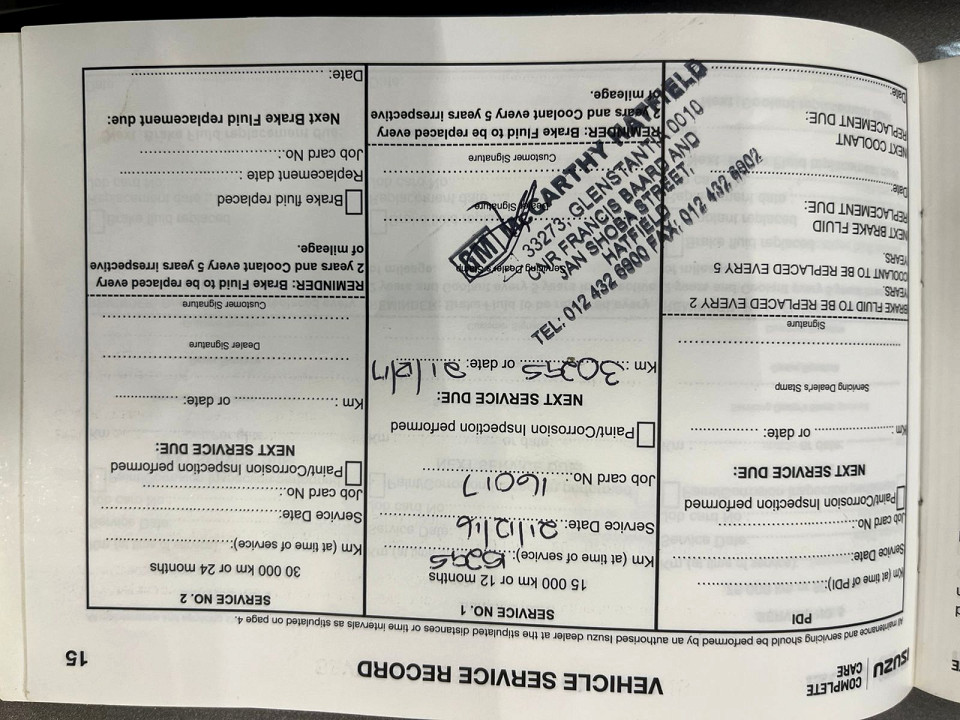 ISUZU
COMPLETE
CARE
VEHICLE SERVICE RECORD
15
All maintenance and servicing should be performed by an authorised Isuzu dealer at the stipulated distances or time intervals as stipulated on page 4.
PDI
Km (at time of PDI):
Service Date:
Job card No.:
Paint/Corrosion Inspection performed
NEXT SERVICE DUE:
Km: or date:
Servicing Dealer's Stamp
Signature
BRAKE FLUID TO BE REPLACED EVERY 2
YEARS.
COOLANT TO BE REPLACED EVERY 5
YEARS.
NEXT BRAKE FLUID
REPLACEMENT DUE:
Date:
NEXT COOLANT
REPLACEMENT DUE:
Date:
SERVICE NO. 1
15 000 km or 12 months
Km (at time of service):
Service Date: 21/12/16
Job card No.: 16017
Paint/Corrosion Inspection performed
NEXT SERVICE DUE:
Km: or date: 21/12/17
Servicing Dealer's Stamp
GMI McCARTHY HATFIELD
33273, GLENSTANTIA 0010
CNR FRANCIS BAARD AND
JAN SHOBA STREET,
HATFIELD
TEL: 012 432 6900 FAX: 012 432 6902
Dealer Signature
Customer Signature
REMINDER: Brake Fluid to be replaced every
2 years and Coolant every 5 years irrespective
of mileage.
SERVICE NO. 2
30 000 km or 24 months
Km (at time of service):
Service Date:
Job card No.:
Paint/Corrosion Inspection performed
NEXT SERVICE DUE:
Km: or date:
Dealer Signature
Customer Signature
REMINDER: Brake Fluid to be replaced every
2 years and Coolant every 5 years irrespective
of mileage.
Brake fluid replaced
Replacement date:
Job card No.:
Next Brake Fluid replacement due:
Date: